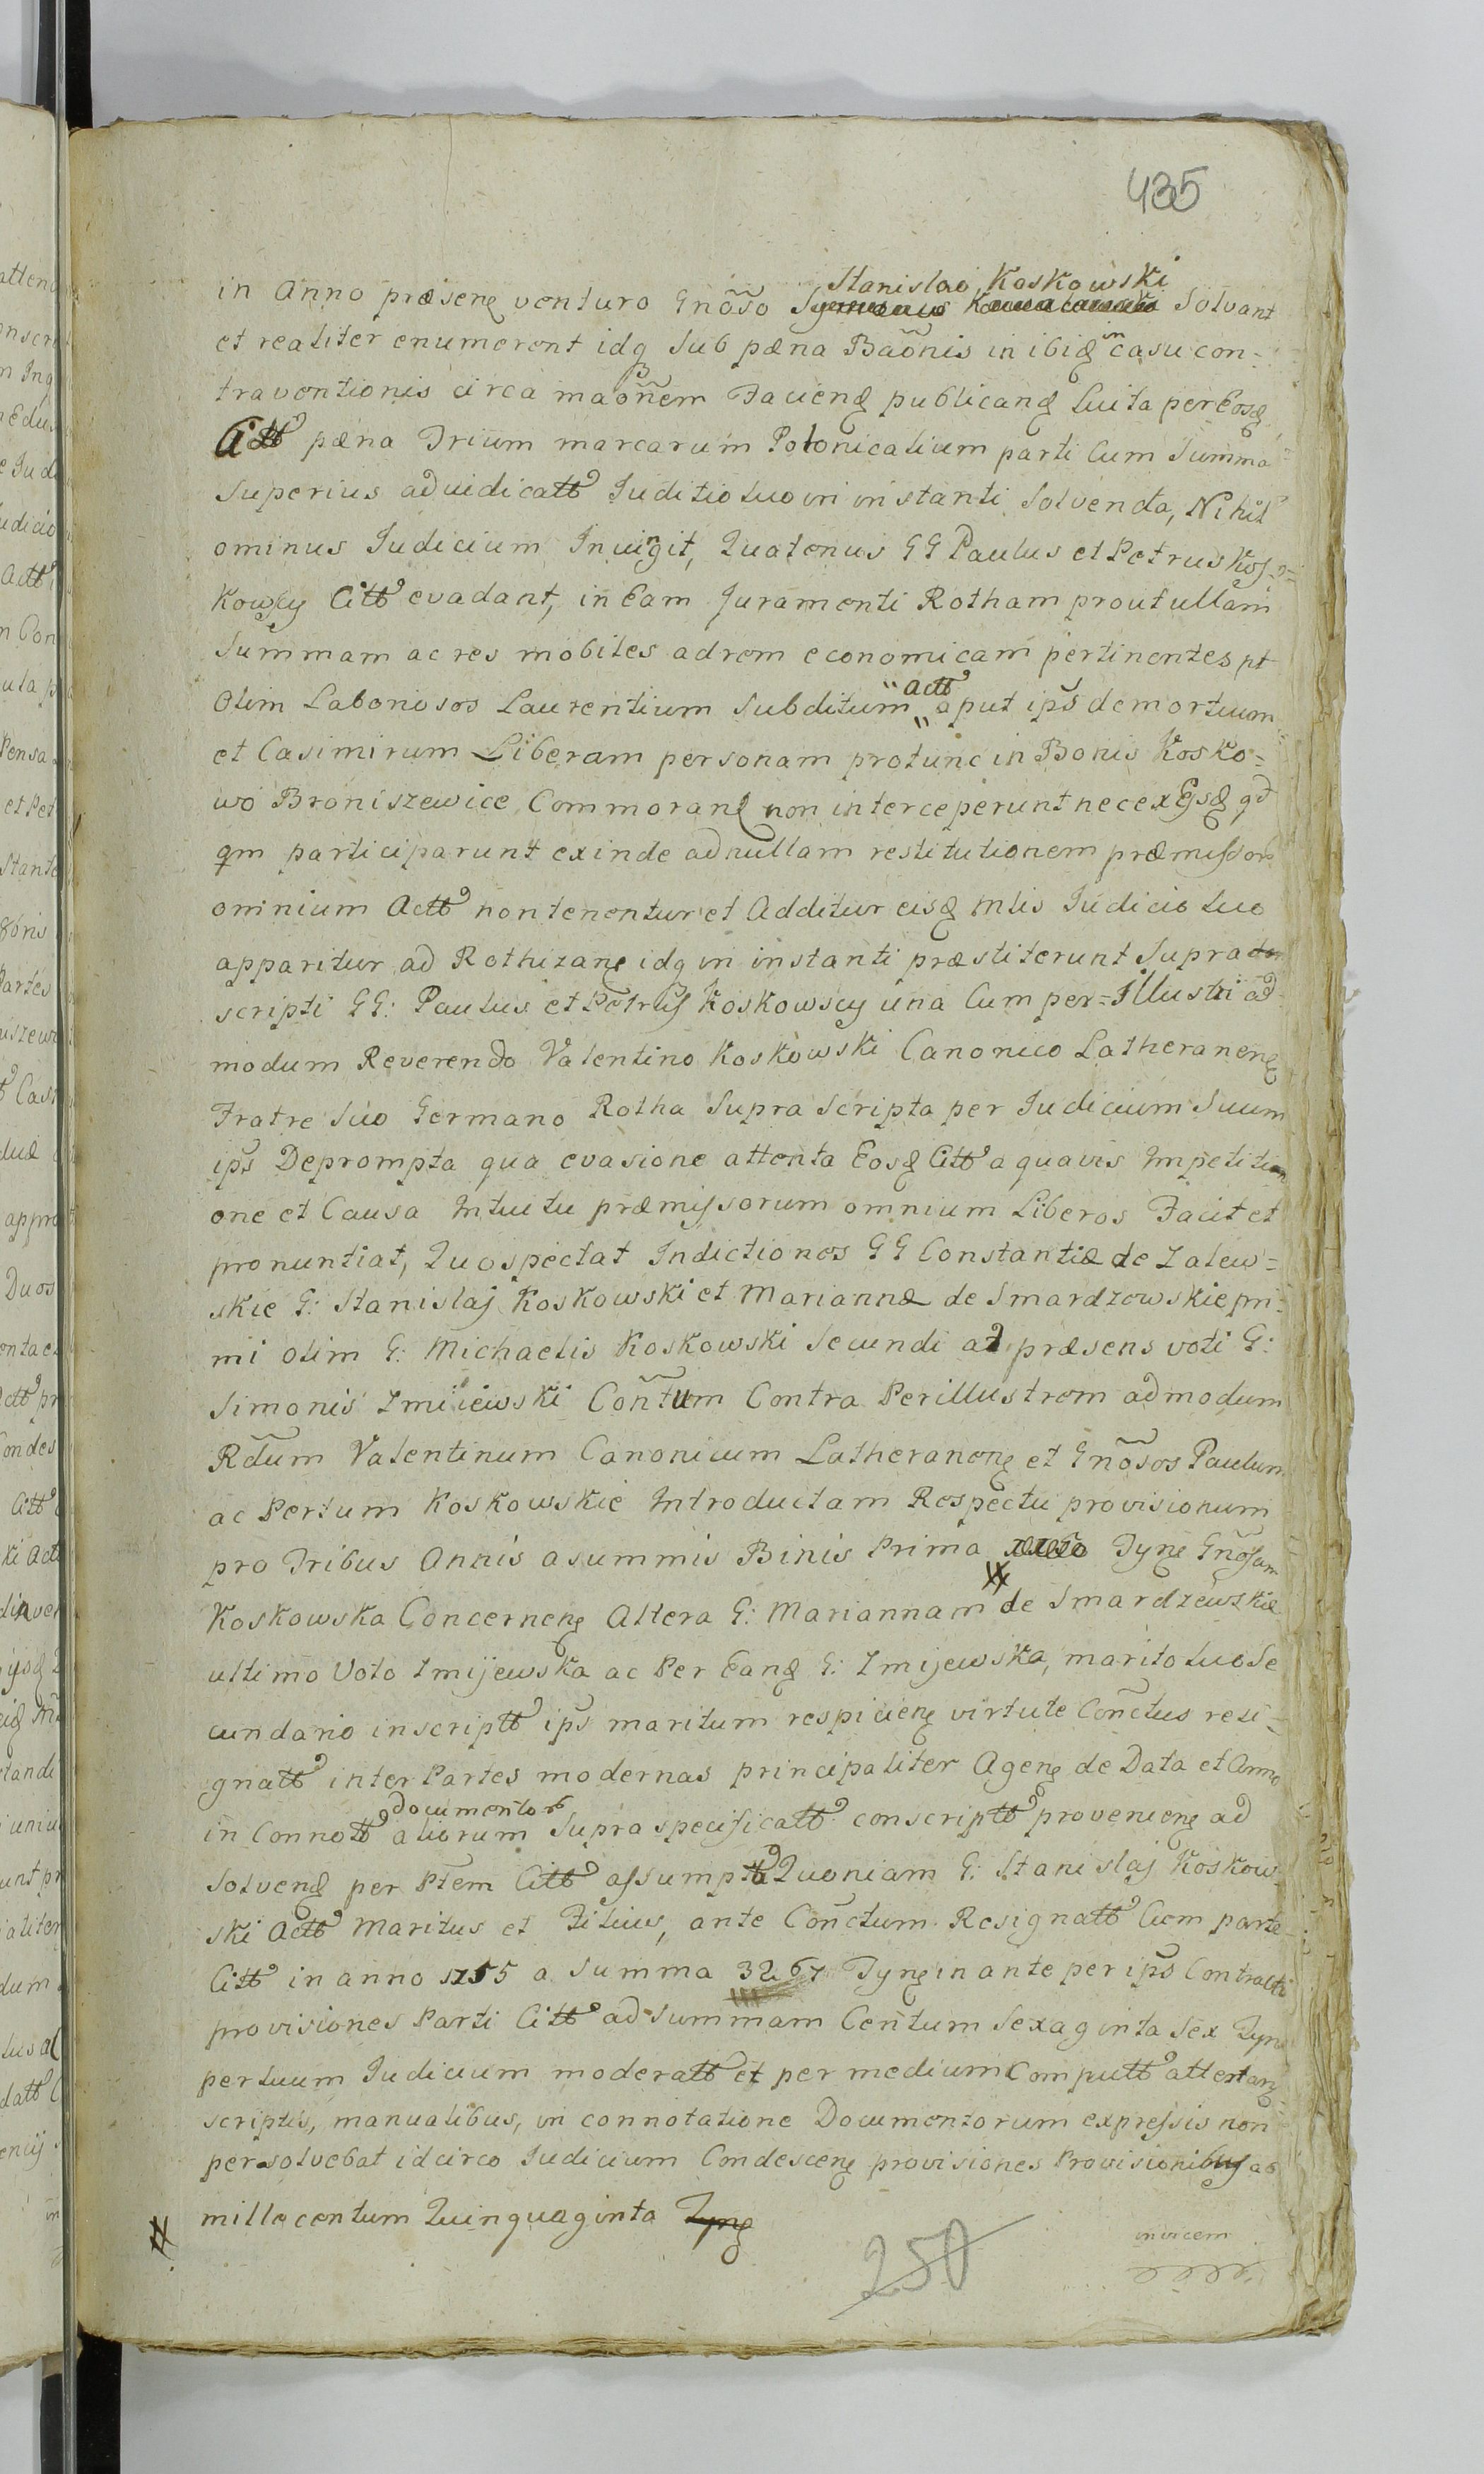 435
Stanislao Koskowski
in Anno præsenę venturo Gnõso Solvant
et realiter enumerent idq sub pæna Baõnis in ibiꝗ in casu con=
traventionis circa maõnem Facienꝗ publicanꝗ luita per Eosꝗ
Citt pæna Trium marcarum Polonicalium parti Cum Summa
superius adiudicatt Juditio luo in instanti solvenda, Nihil
ominus Judicium Iniungit, Quatenus GG Paulus et Petrus Kos=
kowscy Citt evadant, in Eam Juramenti Rotham prout ullam
summam ac res mobiles ad rem economicam pertinentes pt
Actt
Olim Laboriosos Laurentium subditum aput ips demortuum
et Casimirum Liberam personam protunc in Bonis Kosko=
wo Broniszewice Commoranꝗ non interceperunt nec ex Ejsꝗ qd
qm participarunt exinde ad nullam restitutionem præmissor
omnium Actt non tenentur et Additur eisꝗ Mtis Judicio luo
apparitur ad Rothizanę idq in instanti præstiterunt Supra
scripti GG: Paulus et Petrus Koskowscy una Cum per=Illustri ad
modum Reverendo Valentino Koskowski Canonico Latheranenę
Fratre suo Germano Rotha supra scripta per Judicium suum
ips Deprompta qua evasione attenta Eosꝗ Citt a quavis Impetiti
one et Causa Intuitu præmissorum omnium Liberos Facit et
pronuntiat, Quo spectat Indictiones GG Constantiæ de Zalew=
skie G: Stanislaj Koskowski et Mariannæ de Smardzowskie pri=
mi olim G: Michaelis Koskowski secundi ad præsens voti G:
Simonis Zmiiewski Cont̃um Contra Perillustrem admodum
Rd̃um Valentinum Canonicum Latheranenę et Gnõsos Paulum
ac Pertum Koskowskie Introductam Respectu provisionum
pro Tribus Annis a summis Binis Prima Tynę Gnõsam
Koskowska Concernenę Altera G: Mariannam de Smardzewskie
ultimo Voto Zmijewska ac Per Eanꝗ G: Zmijewska, marito luo Se
cundario inscriptt ips maritum respicienę virtute Conctus resi=
gnatt inter Partes modernas principaliter Agenę de Data et Anno
Documentor
in Connott aliorum supra specificatt conscriptt provenienę ad
solvenꝗ per Ptem Citt assumptt Quoniam G: Stanislaj Koskow
ski Actt Maritus et Filius, ante Conctum Resignatt Cum parte
Citt in anno 1755 a summa 3267 Tynę in ante per ips Contracti
provisiones Parti Citt ad summam Centum Sexaginta Sex Tyn
per luum Judicium moderatt et per medium Computt attentanę
scriptis, manualibus, in connotatione Documentorum expressis non
persolvebat idcirco Judicium Condescenę provisiones Provisionibus ab
# mille centum Quinquaginta Tynę
250
invicem